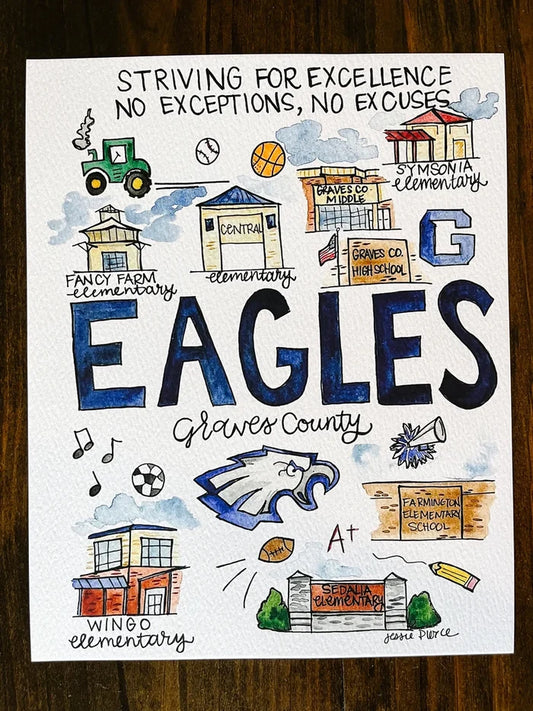 STRIVING FOR EXCELLENCE
NO EXCEPTIONS, NO EXCUSES
SYMSONIA
elementary
GRAVES CO.
MIDDLE
G
CENTRAL
elementary
GRAVES CO.
HIGH SCHOOL
FANCY FARM
elementary
EAGLES
Graves County
FARMINGTON
ELEMENTARY
SCHOOL
A+
SEDALIA
elementary
WINGO
elementary
Jessie Pierce